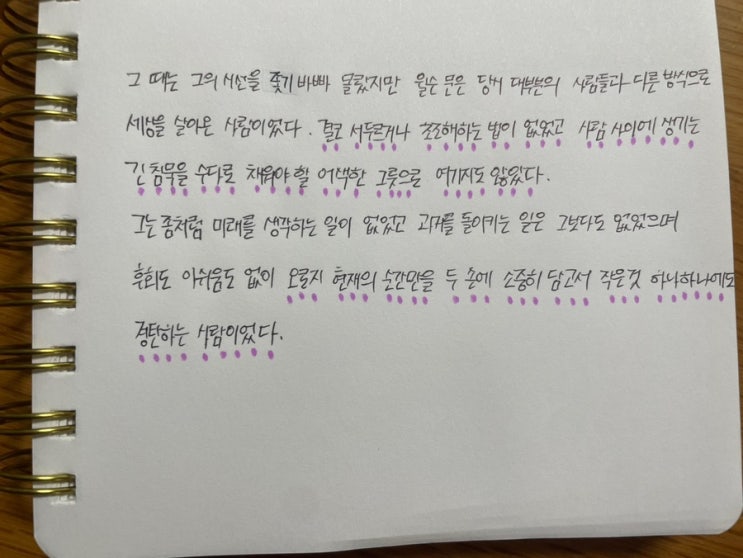 그 때는 그의 시선을 좇기 바빠 몰랐지만 윌슨 문은 당시 대부분의 사람들과 다른 방식으로
세상을 살아온 사람이었다. 결코 서두르거나 초조해하는 법이 없었고 사람 사이에 생기는
긴 침묵을 수다로 채워야 할 어색한 그릇으로 여기지도 않았다.
그는 좀처럼 미래를 생각하는 일이 없었고 과거를 돌이키는 일은 그보다도 없었으며
후회도 아쉬움도 없이 오로지 현재의 순간만을 두 손에 소중히 담고서 작은것 하나하나에도
경탄하는 사람이었다.